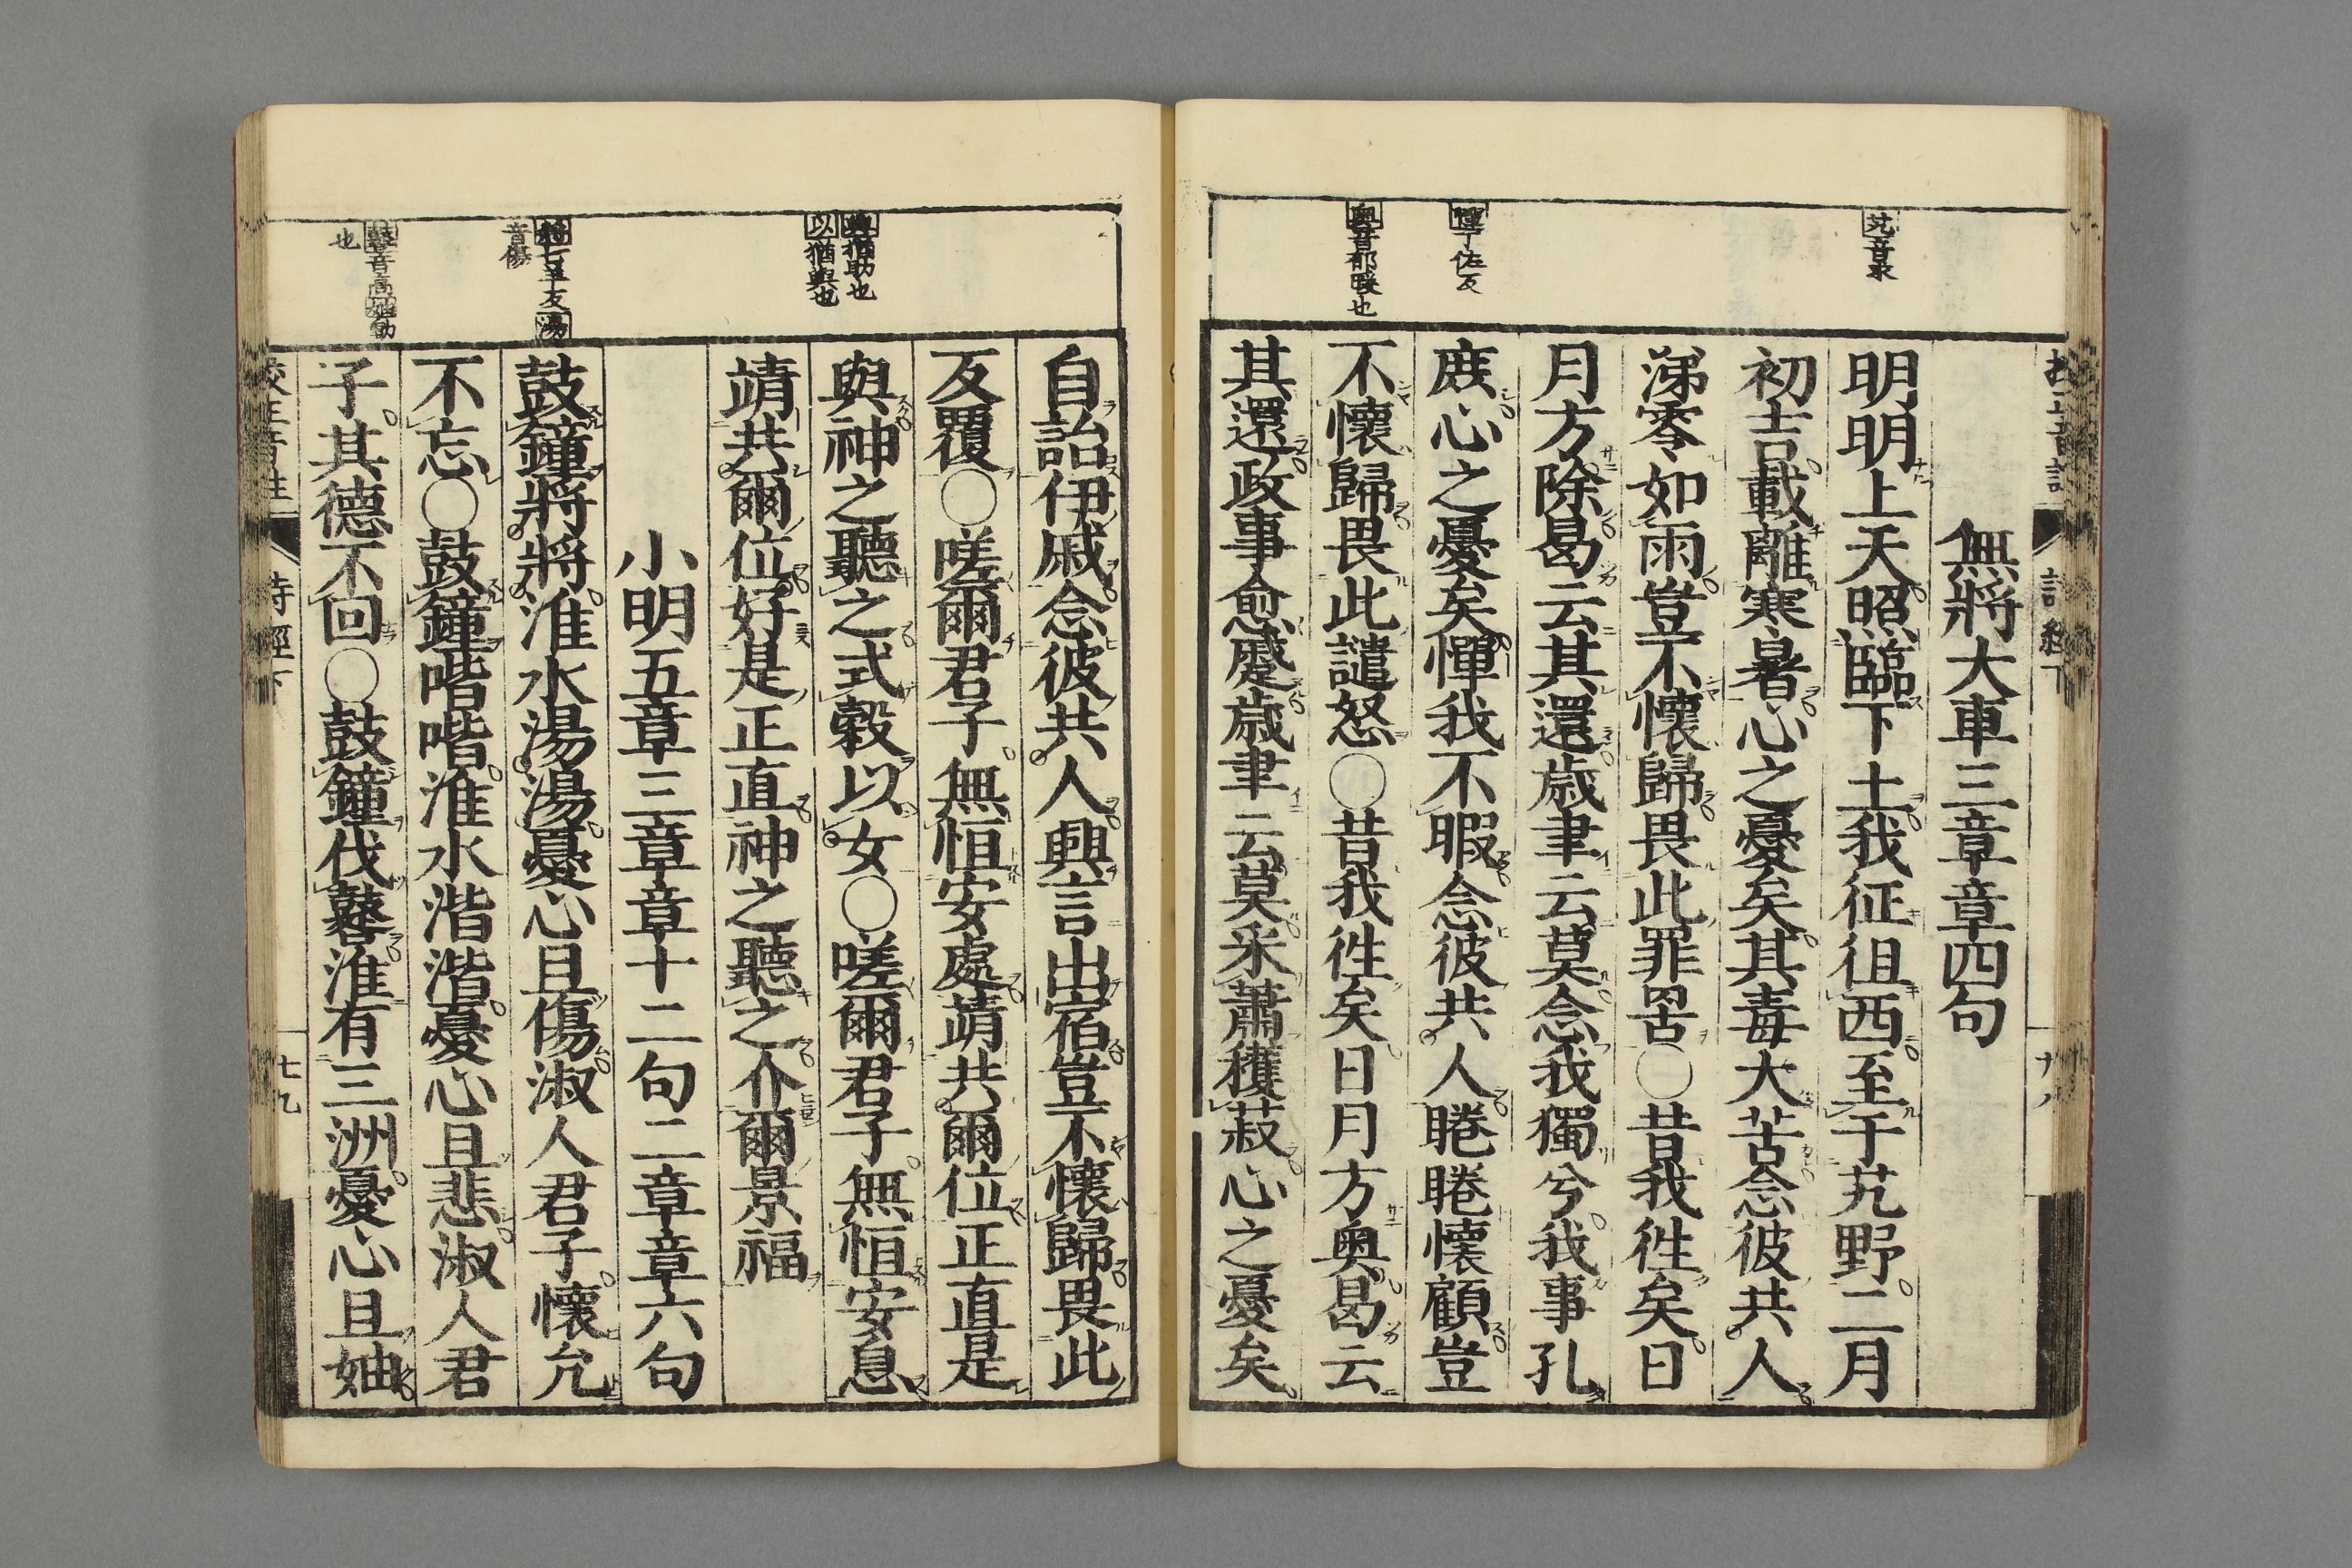 芃音求
憚丁佐反
奧音郁暖也
無將大車三章章四句
明明上天照臨下土我征徂西至于芃野二月
初吉載離寒暑心之憂矣其毒大苦念彼共人
涕零如雨豈不懷歸畏此罪罟○昔我徃矣日
月方除曷云其還歳聿云莫念我獨兮我事孔
庻心之憂矣憚我不暇念彼共人睠睠懷顧豈
不懷歸畏此譴怒○昔我徃矣日月方奧曷云
其還政事愈蹙歳聿云莫采蕭穫菽心之憂矣
與猶助也
以猶與也
將七羊反湯
音傷
鼛音高妯動
也
自詒伊戚念彼共人興言出宿豈不懷歸畏此
反覆○嗟爾君子無恒安處靖共爾位正直是
與神之聽之式穀以女○嗟爾君子無恒安息
靖共爾位好是正直神之聽之介爾景福
小明五章三章章十二句二章章六句
鼓鐘將將淮水湯湯憂心且傷淑人君子懷允
不忘○鼓鐘喈喈淮水湝湝憂心且悲淑人君
子其德不回○鼓鐘伐鼛淮有三洲憂心且妯
詩經下
七九